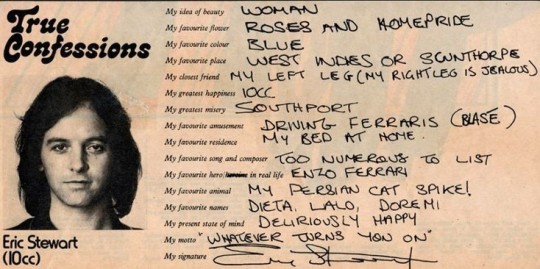 True
Confessions
My idea of beauty WOMAN
My favourite flower ROSES AND HOMEPRIDE
My favourite colour BLUE
My favourite place WEST INDIES OR SCUNTHORPE
My closest friend MY LEFT LEG (MY RIGHT LEG IS JEALOUS)
My greatest happiness 10CC
My greatest misery SOUTHPORT
My favourite amusement DRIVING FERRARIS (BLASE)
My favourite residence MY BED AT HOME.
My favourite song and composer TOO NUMEROUS TO LIST
My favourite hero/heroine in real life ENZO FERRARI
My favourite animal MY PERSIAN CAT SPIKE!
My favourite names DIETA, LALO, DOREMI
My present state of mind DELIRIOUSLY HAPPY
My motto "WHATEVER TURNS YOU ON"
My signature Eric Stewart
Eric Stewart
(10cc)